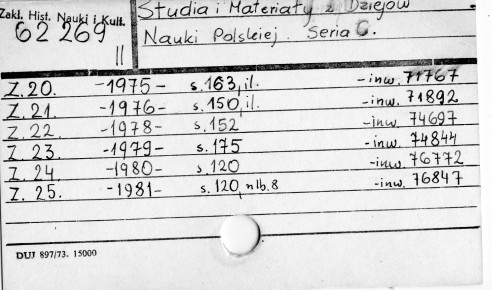 Zakł. Hist. Nauki i Kult.
62 269
II
Studia i Materiały z Dziejów
Nauki Polskiej. Seria C.
Z. 20. -1975- s. 163, il. -inw. 71767
Z. 21. -1976- s. 150, il. -inw. 71892
Z. 22. -1978- s. 152 -inw. 74697
Z. 23. -1979- s. 175 -inw. 74844
Z. 24. -1980- s. 120 -inw. 76772
Z. 25. -1981- s. 120, nlb. 8 -inw. 76847
DUJ 897/73. 15000